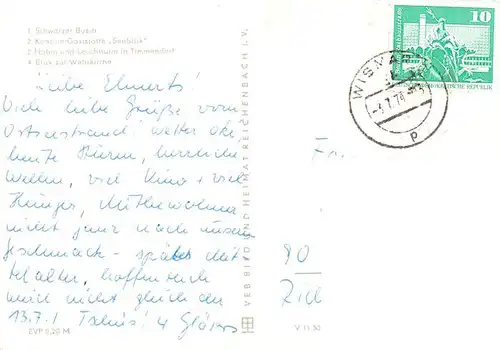 1. Schwarzer Busch
2. Konsum-Gaststätte „Seeblick"
3. Hafen und Leuchtturm in Timmendorf
4. Blick zur Wohlskirche
Liebe Ehnerts!
Viele liebe Grüße vom
Ostseestrand! Wetter oke
heute Sturm, herrliche
Wellen, viel Kino + viel
Hunger, Mitbewohner
nicht ganz nach unserem
Geschmack - spätes Mit-
telalter, hoffentlich
wird nicht gleich der
13.7.! Tschüs! 4 Gläsers
EVP 0,20 M
VEB BILD UND HEIMAT REICHENBACH I. V.
V 11 50
10
DEUTSCHE DEMOKRATISCHE REPUBLIK
WISMAR
-4.7.79
p
Fr.
90
Zid